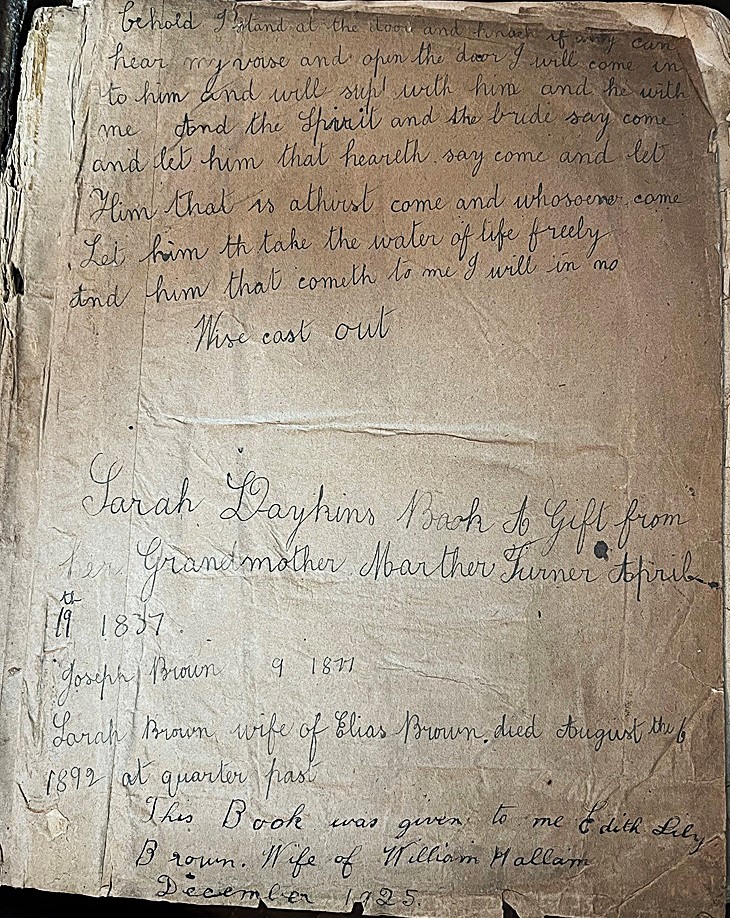 behold I stand at the door and knock if any can
hear my voise and open the door I will come in
to him and will sup with him and he with
me And the Spirit and the bride say come
and let him that heareth say come and let
Him that is athirst come and whosoever come
Let him th take the water of life freely
And him that cometh to me I will in no
Wise cast out
Sarah Daykins Book A Gift from
her Grandmother Marther Turner April
19th 1837.
Joseph Brown 9 1871
Sarah Brown wife of Elias Brown. died August the 6
1892 at quarter past
This Book was given to me Edith Lily
Brown. Wife of William Hallam
December 1925.